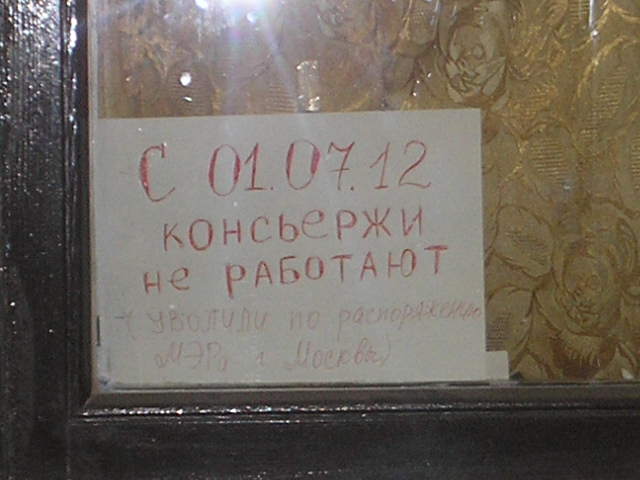 С 01.07.12
КОНСЬЕРЖИ
не РАБОТАЮТ
(УВОЛИЛИ по распоряжению
МЭРа г Москвы)